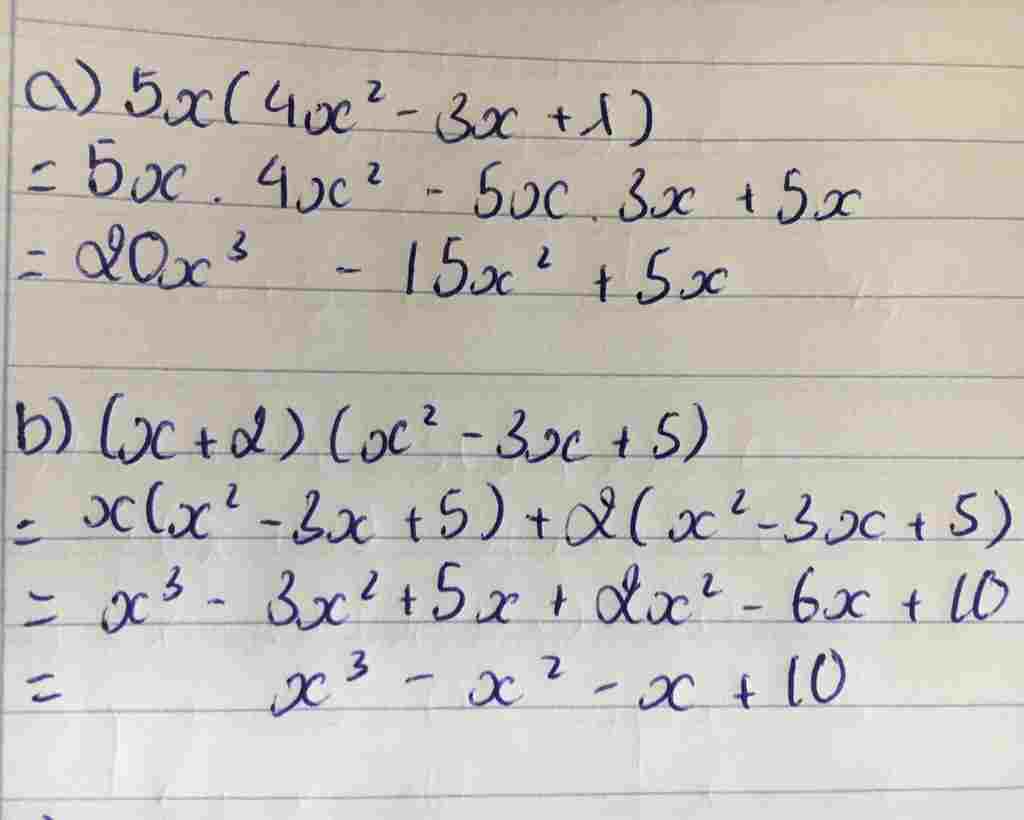 a) 5x(4x² - 3x + 1)
= 5x . 4x² - 5x . 3x + 5x
= 20x³ - 15x² + 5x
b) (x + 2) (x² - 3x + 5)
= x(x² - 3x + 5) + 2(x² - 3x + 5)
= x³ - 3x² + 5x + 2x² - 6x + 10
= x³ - x² - x + 10